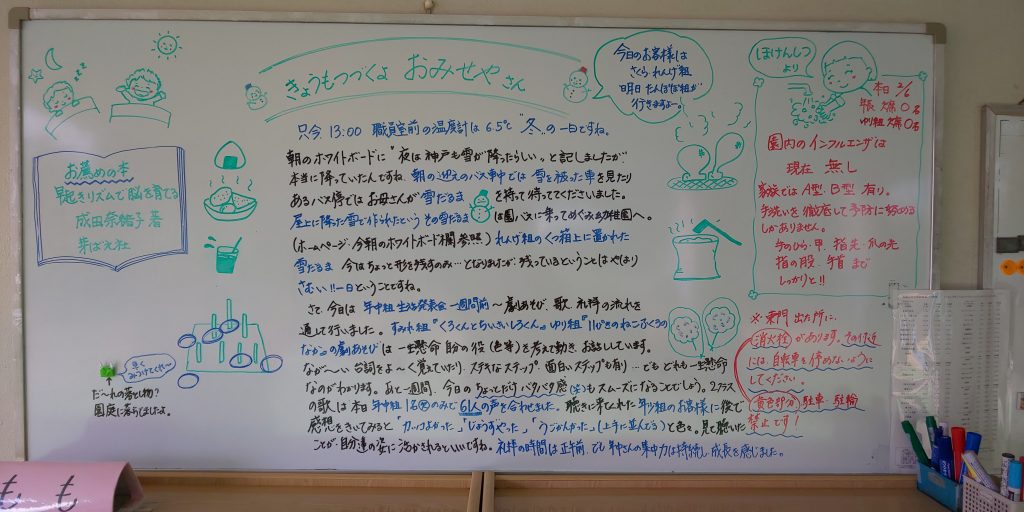 きょうもつづくよ おみせやさん
今日のお客様は
さくら れんげ組
明日 たんぽぽ組が
行きますよー。
ほけんしつ
より
本日 2/6
長 欠席 0名
ゆり組 欠席 0名
園内のインフルエンザは
現在 無し
家族では A型 B型 有り。
手洗いを徹底して予防に努める
しかありません。
手のひら・甲 指先・爪の先
指の股 手首 まで
しっかりと!!
お薦めの本
早起きリズムで脳を育てる
成田奈緒子 著
芽ばえ社
只今 13:00 職員室前の温度計は 6.5℃ "冬"の一日ですね。
朝のホワイトボードに "夜は神戸も雪が降ったらしい"と記しましたが
本当に降っていたんですね。朝の迎えのバス車中では 雪を被った車を見たり
あるバス停では お母さんが 雪だるま を持って待ってくださいました。
屋上に降った雪で作られたという その雪だるま は園バスに乗って めぐみ幼稚園へ。
(ホームページ・今朝のホワイトボード欄 参照) れんげ組のくつ箱上に置かれた
雪だるま 今はちょっと形を残すのみ…となりましたが 残っているということは やはり
さむい!!一日ということですね。
さて、今日は 年中組 生活発表会 一週間前〜 劇あそび 歌 礼拝の流れを
通して行いました。すみれ組"ぐるんぐるん ゆり組"11ぴきのねこふくろの
なか"の劇あそびは 一生懸命 自分の役(色々)を考えて動き お話しています。
なが〜い 台詞をよ〜く覚えていたり ステキなステップ 面白いステップも有り… でも どれも一生懸命
なのがわかります。あと一週間 今日の ちょっとだけバタバタ感(笑)も スムーズになることでしょう。2クラス
の歌は 本日 年中組 1名(欠)のみで 61人の声を合わせました。聴きに来てくれた 年少組のお客様に 後で
感想をきいてみると「カッコよかった」「じょうずやった」「うごかんかった」(上手に並んどう)と色々。見て聴いた
ことが 自分達の姿に 活かされるといいですね。礼拝の時間は 正午前 でも 年中さんの集中力は持続し 成長を感じました。
早く
みつけてくれ〜
だ〜れの落とし物?
園庭に落ちてましたよ。
※ 東門 出た所に、
消火栓 があります。その付近
には、自転車を停めないように
してください。
黄色部分 駐車・駐輪
禁止です!
も も